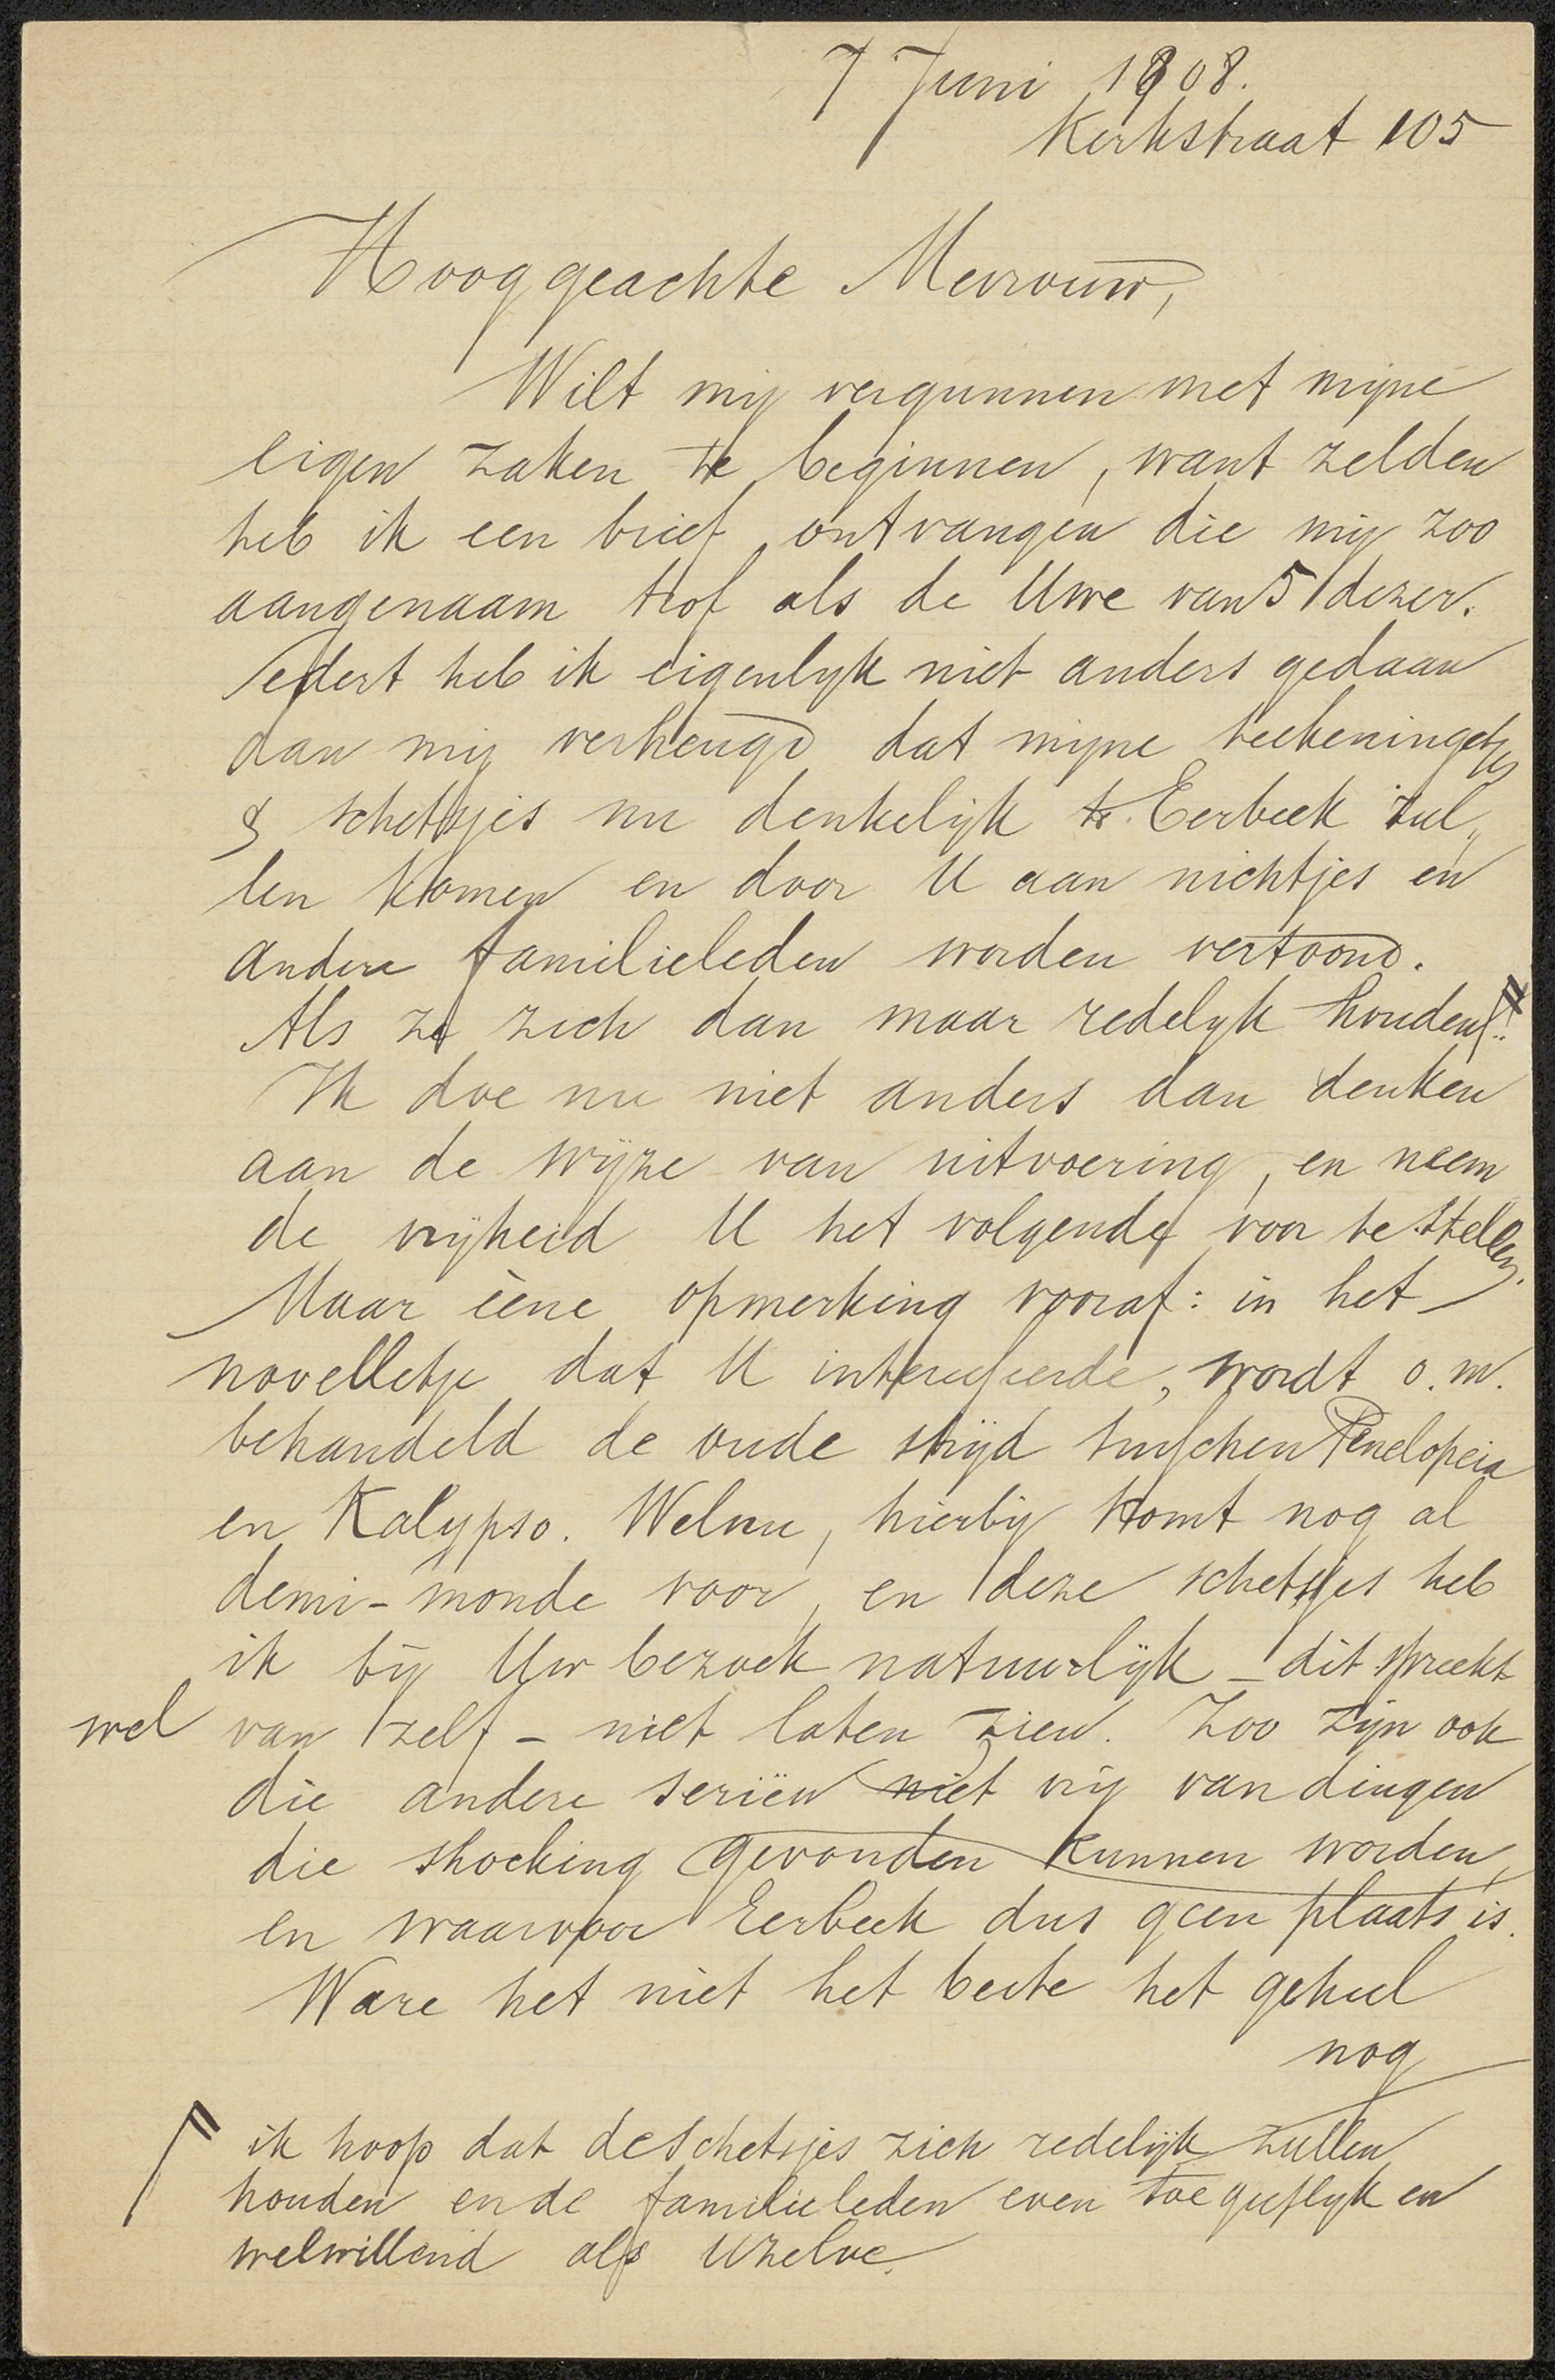 7 Juni 1908.
Kerkstraat 105
Hooggeachte Mevrouw,
Wilt mij vergunnen met mijne
eigen zaken te beginnen, want zelden
heb ik een brief ontvangen die mij zoo
aangenaam trof als de Uwe van 5 dezer.
Sedert heb ik eigenlijk niet anders gedaan
dan mij verheugd dat mijne teekeningetjes
& schetsjes nu denkelijk te Eerbeek zul„
len komen en door U aan nichtjes en
andere familieleden worden vertoond.
Als ze zich dan maar redelijk houden!
Ik doe nu niet anders dan denken
aan de wijze van uitvoering, en neem
de vrijheid U het volgende voor te stellen.
Maar ééne opmerking vooraf: in het
novelletje dat U interesseerde, wordt o.m.
behandeld de oude strijd tusschen Penelopeia
en Kalypso. Welnu, hierbij komt nog al
demi-monde voor, en deze schetsjes heb
ik bij Uw bezoek natuurlijk – dit spreekt
wel van zelf – niet laten zien. Zoo zijn ook
die andere seriën niet vrij van dingen
die shocking gevonden kunnen worden,
en waarvoor Eerbeek dus geen plaats is.
Ware het niet het beste het geheel
nog
ik hoop dat de schetsjes zich redelijk zullen
houden en de familieleden even toegeeflijk en
welwillend als Uzelve.